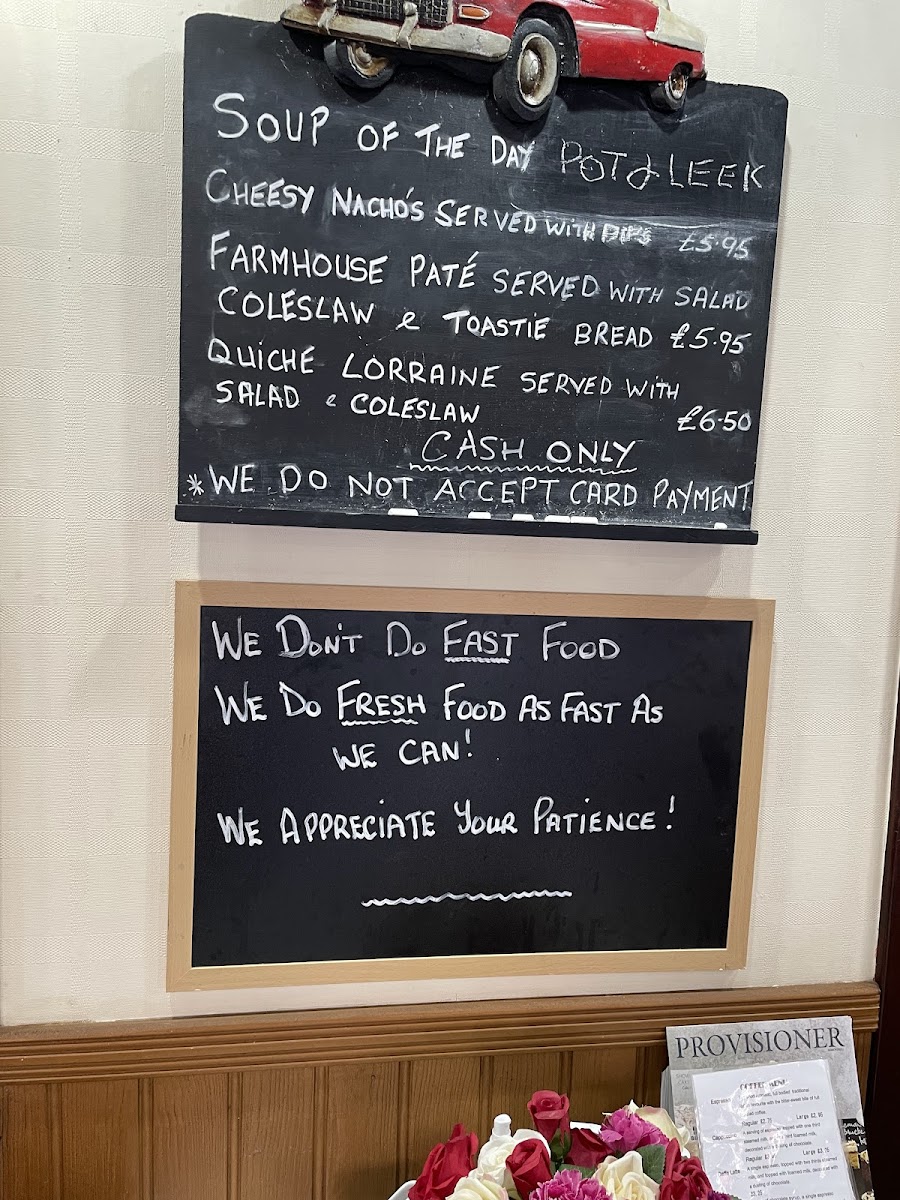 SOUP OF THE DAY POT & LEEK
CHEESY NACHO'S SERVED WITH DIPS £5.95
FARMHOUSE PATÉ SERVED WITH SALAD
COLESLAW & TOASTIE BREAD £5.95
QUICHE LORRAINE SERVED WITH
SALAD & COLESLAW £6.50
CASH ONLY
*WE DO NOT ACCEPT CARD PAYMENT
WE DON'T DO FAST FOOD
WE DO FRESH FOOD AS FAST AS
WE CAN!
WE APPRECIATE YOUR PATIENCE!
PROVISIONER
COFFEE MENU
Espresso
coffee.
Regular Large
Cappuccino
a dusting of chocolate.
Regular Large £3.75